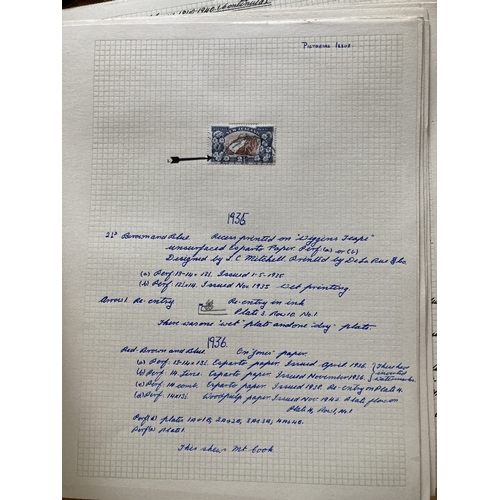 Pictorial Issue
1935
2½d Brown and Blue. Recess printed on "Wiggins Teape"
unsurfaced Esparto Paper. Perf. (a) or (b)
Designed by L.C. Mitchell. Printed by De La Rue & Co.
(a) Perf 13-14 x 13½. Issued 1-5-1935
(b) Perf. 13½ x 14. Issued Nov 1935 Wet printing
Re-entry Re-entry in ink
Plate 2, Row 10, No. 1.
There was one "wet" plate and one "dry" plate
1936
Red-Brown and Blue. On "Jones" paper
(a) Perf. 13-14 x 13½. Esparto paper. Issued April 1936.
(b) Perf. 14 Line. Esparto paper. Issued November 1936.
(c) Perf. 14 comb. Esparto paper. Issued 1938. Re-entry on Plate 4.
(d) Perf. 14 x 13½. Woodpulp paper. Issued Nov. 1942. Plate flaw on
Plate 4, Row 1, No. 1
These have inverted watermarks
Perf (b) plates 1A & 1B, 2A & 2B, 3A & 3B, 4A & 4B.
Perf (a) plate 1.
This shews Mt Cook